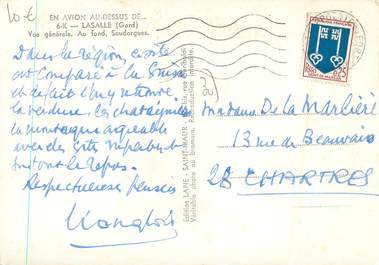 10 €
EN AVION AU-DESSUS DE...
6-K — LASALLE (Gard)
Vue générale. Au fond, Soudorgues.
Dans la région, ce site
est comparé à la Suisse
et de fait l'on y retrouve
la verdure, les châtaigniers
la montagne agréable
avec des sites superbes et
surtout le repos.
Respectueuses pensées
Edition LAPIE - SAINT-MAUR
Véritable photo au bromure. Reproduction interdite.
Madame De La Marlière
13 rue de Beauvais
28 CHARTRES
0,25